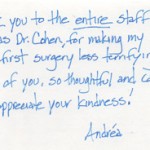 you to the entire staff
as Dr. Cohen, for making my
first surgery less terrifying
of you, so thoughtful and
appreciate your kindness!
Andréa